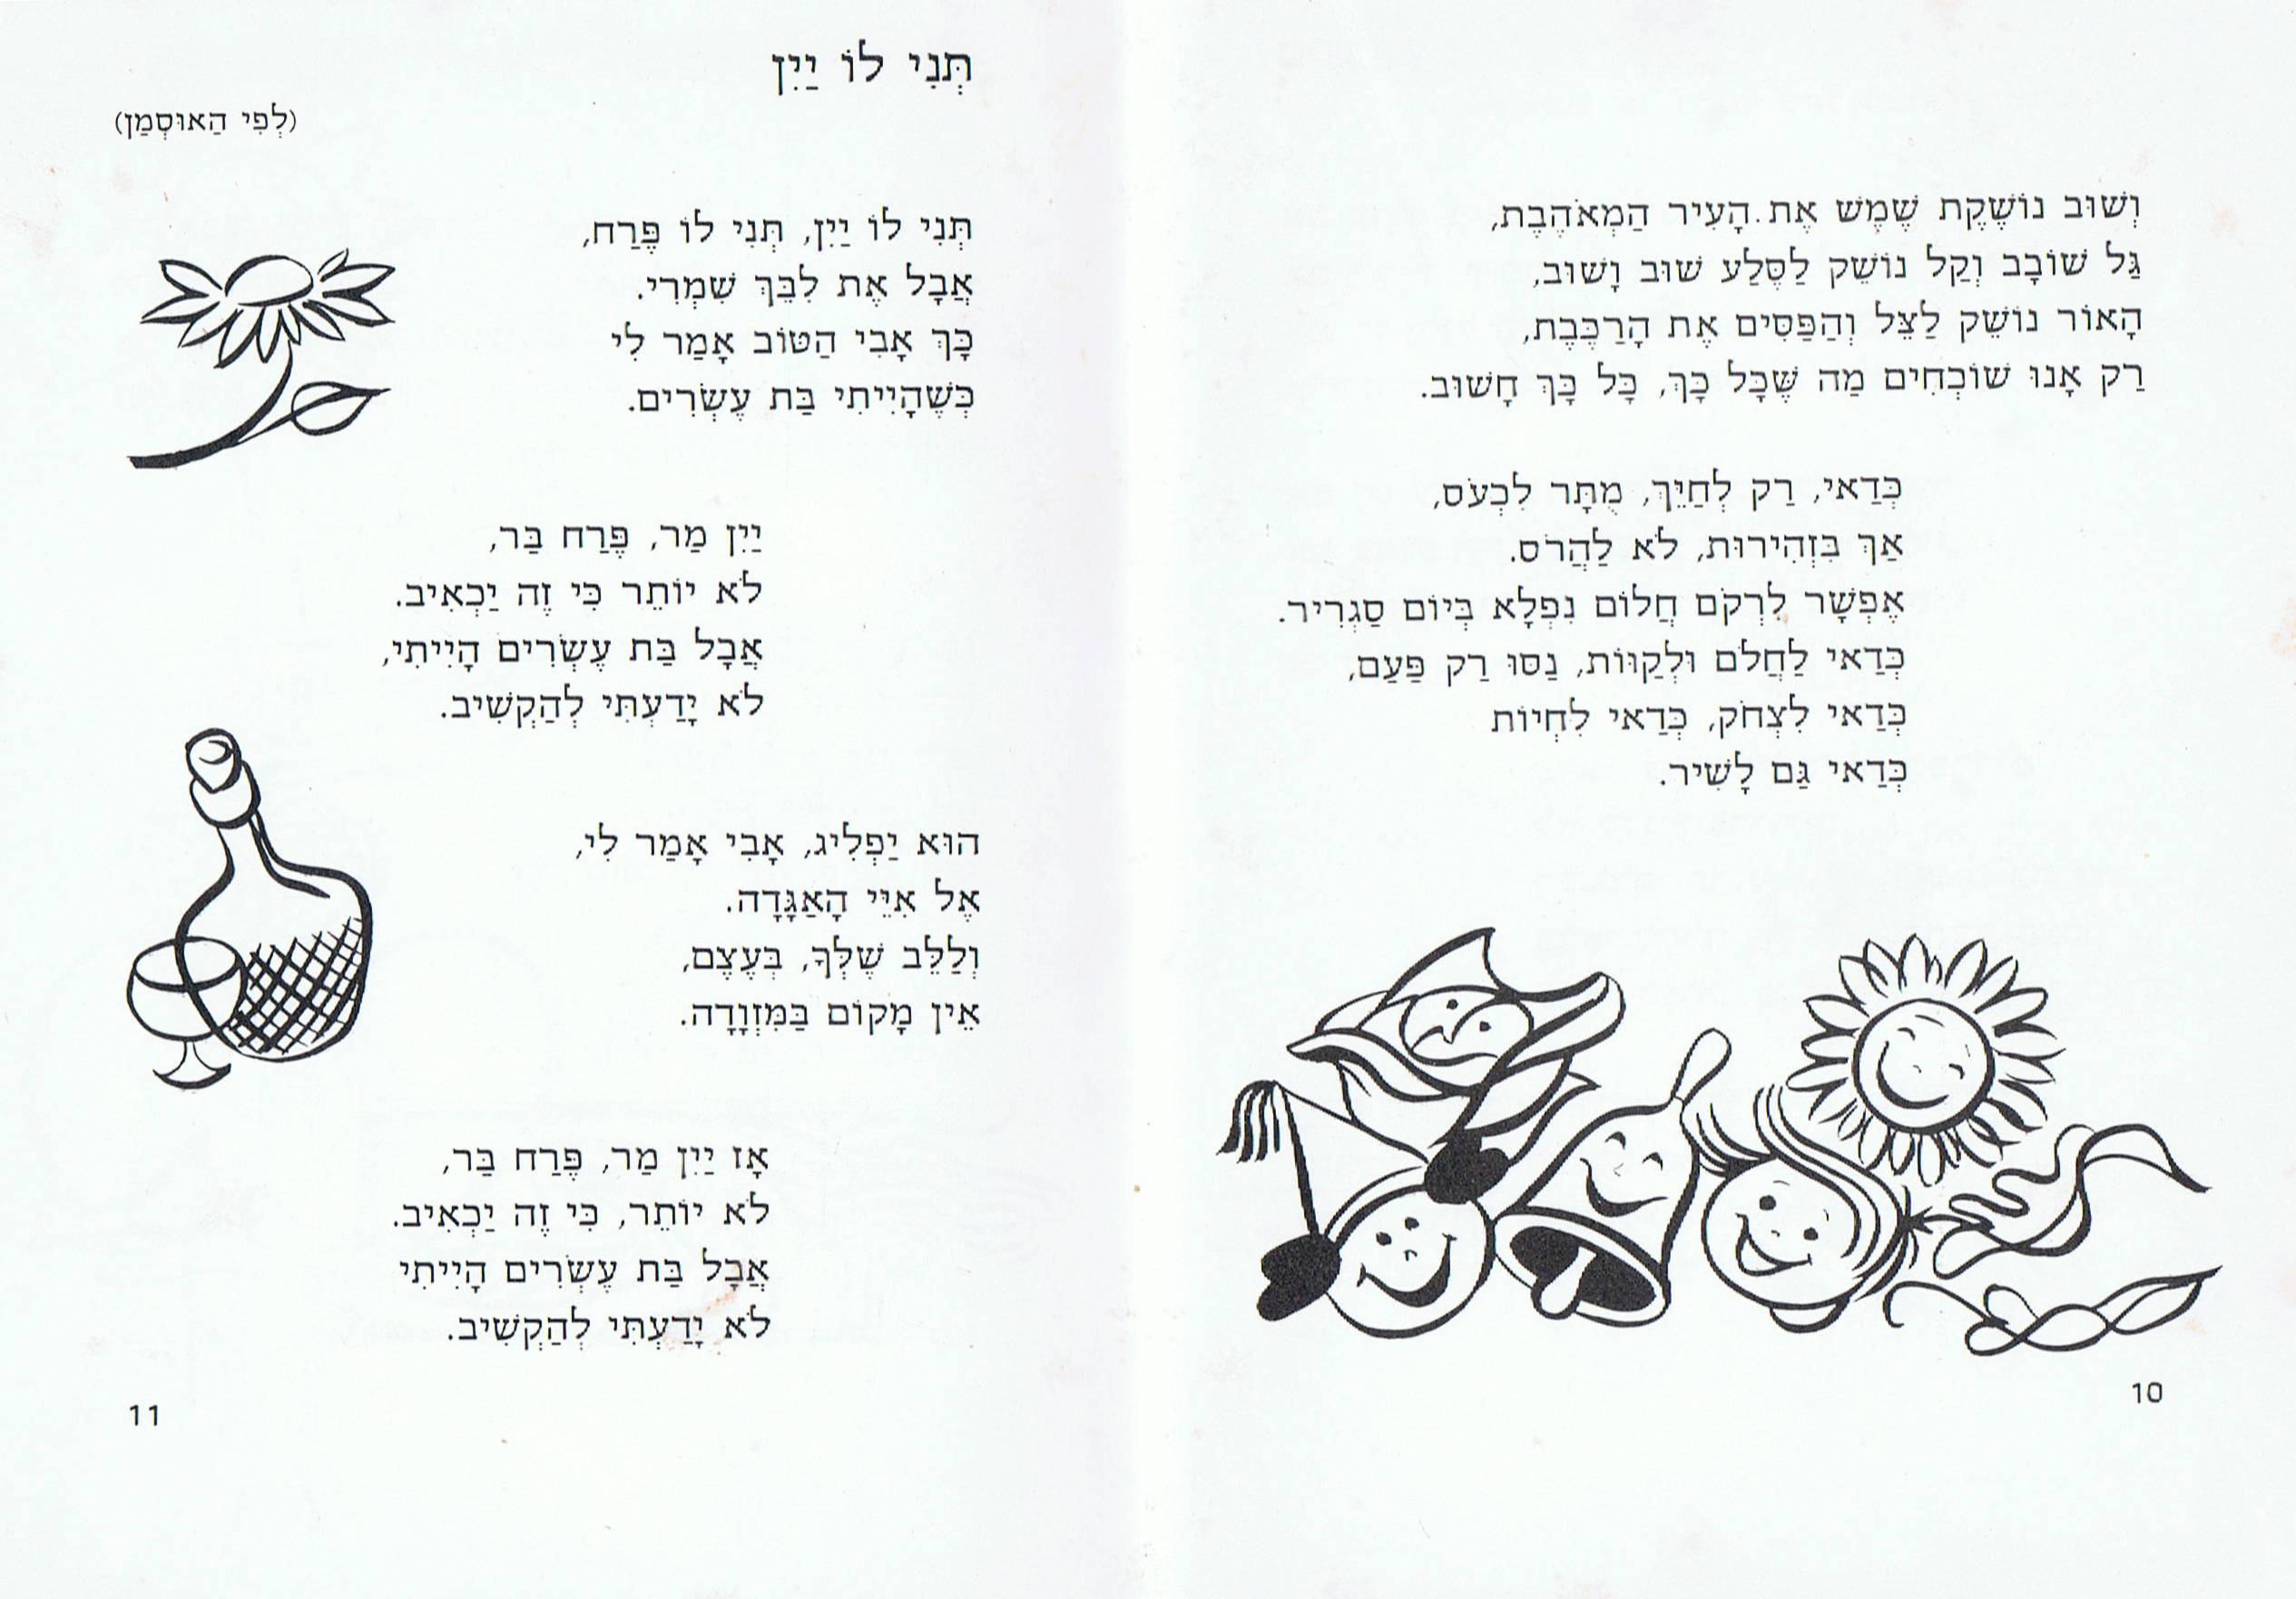 וְשׁוּב נוֹשֶׁקֶת שֶׁמֶשׁ אֶת הָעִיר הַמְאֹהֶבֶת,
גַּל שׁוֹבָב וְקַל נוֹשֵׁק לַסֶּלַע שׁוּב וָשׁוּב,
הָאוֹר נוֹשֵׁק לַצֵּל וְהַפַּסִּים אֶת הָרַכֶּבֶת,
רַק אָנוּ שׁוֹכְחִים מַה שֶּׁכָּל כָּךְ, כָּל כָּךְ חָשׁוּב.
כְּדַאי, רַק לְחַיֵּךְ, מֻתָּר לִכְעֹס,
אַךְ בִּזְהִירוּת, לֹא לַהֲרֹס.
אֶפְשָׁר לִרְקֹם חֲלוֹם נִפְלָא בְּיוֹם סַגְרִיר.
כְּדַאי לַחֲלֹם וּלְקַוּוֹת, נַסּוּ רַק פַּעַם,
כְּדַאי לִצְחֹק, כְּדַאי לִחְיוֹת
כְּדַאי גַּם לָשִׁיר.
10
תְּנִי לוֹ יַיִן
(לְפִי הַאוּסְמַן)
תְּנִי לוֹ יַיִן, תְּנִי לוֹ פֶּרַח,
אֲבָל אֶת לִבֵּךְ שִׁמְרִי.
כָּךְ אָבִי הַטּוֹב אָמַר לִי
כְּשֶׁהָיִיתִי בַּת עֶשְׂרִים.
יַיִן מַר, פֶּרַח בַּר,
לֹא יוֹתֵר כִּי זֶה יַכְאִיב.
אֲבָל בַּת עֶשְׂרִים הָיִיתִי,
לֹא יָדַעְתִּי לְהַקְשִׁיב.
הוּא יַפְלִיג, אָבִי אָמַר לִי,
אֶל אִיֵּי הָאַגָּדָה.
וְלַלֵּב שֶׁלְּךָ, בְּעֶצֶם,
אֵין מָקוֹם בַּמִּזְוָדָה.
אָז יַיִן מַר, פֶּרַח בַּר,
לֹא יוֹתֵר, כִּי זֶה יַכְאִיב.
אֲבָל בַּת עֶשְׂרִים הָיִיתִי
לֹא יָדַעְתִּי לְהַקְשִׁיב.
11